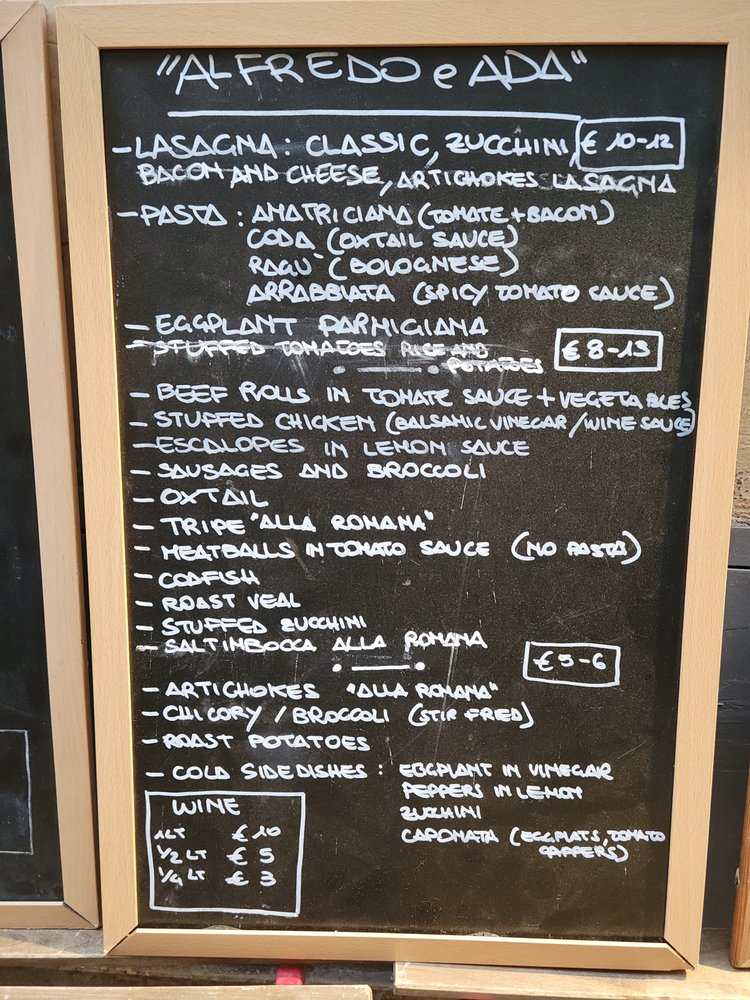 "ALFREDO e ADA"
- LASAGNA: CLASSIC, ZUCCHINI, € 10-12
BACON AND CHEESE, ARTICHOKES LASAGNA
- PASTA: AMATRICIANA (TOMATE + BACON)
CODA (OXTAIL SAUCE)
RAGU' (BOLOGNESE)
ARRABBIATA (SPICY TOMATO SAUCE)
- EGGPLANT PARMIGIANA
- STUFFED TOMATOES RICE AND
POTATOES
€ 8-13
- BEEF ROLLS IN TOMATE SAUCE + VEGETABLES
- STUFFED CHICKEN (BALSAMIC VINEGAR / WINE SAUCE)
- ESCALOPES IN LEMON SAUCE
- SAUSAGES AND BROCCOLI
- OXTAIL
- TRIPE "ALLA ROMANA"
- MEATBALLS IN TOMATO SAUCE (NO PASTA)
- CODFISH
- ROAST VEAL
- STUFFED ZUCCHINI
- SALTIMBOCCA ALLA ROMANA
€ 5-6
- ARTICHOKES "ALLA ROMANA"
- CHICORY / BROCCOLI (STIR FRIED)
- ROAST POTATOES
- COLD SIDEDISHES: EGGPLANT IN VINEGAR
PEPPERS IN LEMON
ZUCHINI
CAPONATA (EGGPLATS, TOMATO
CAPPERS)
WINE
1 LT € 10
1/2 LT € 5
1/4 LT € 3